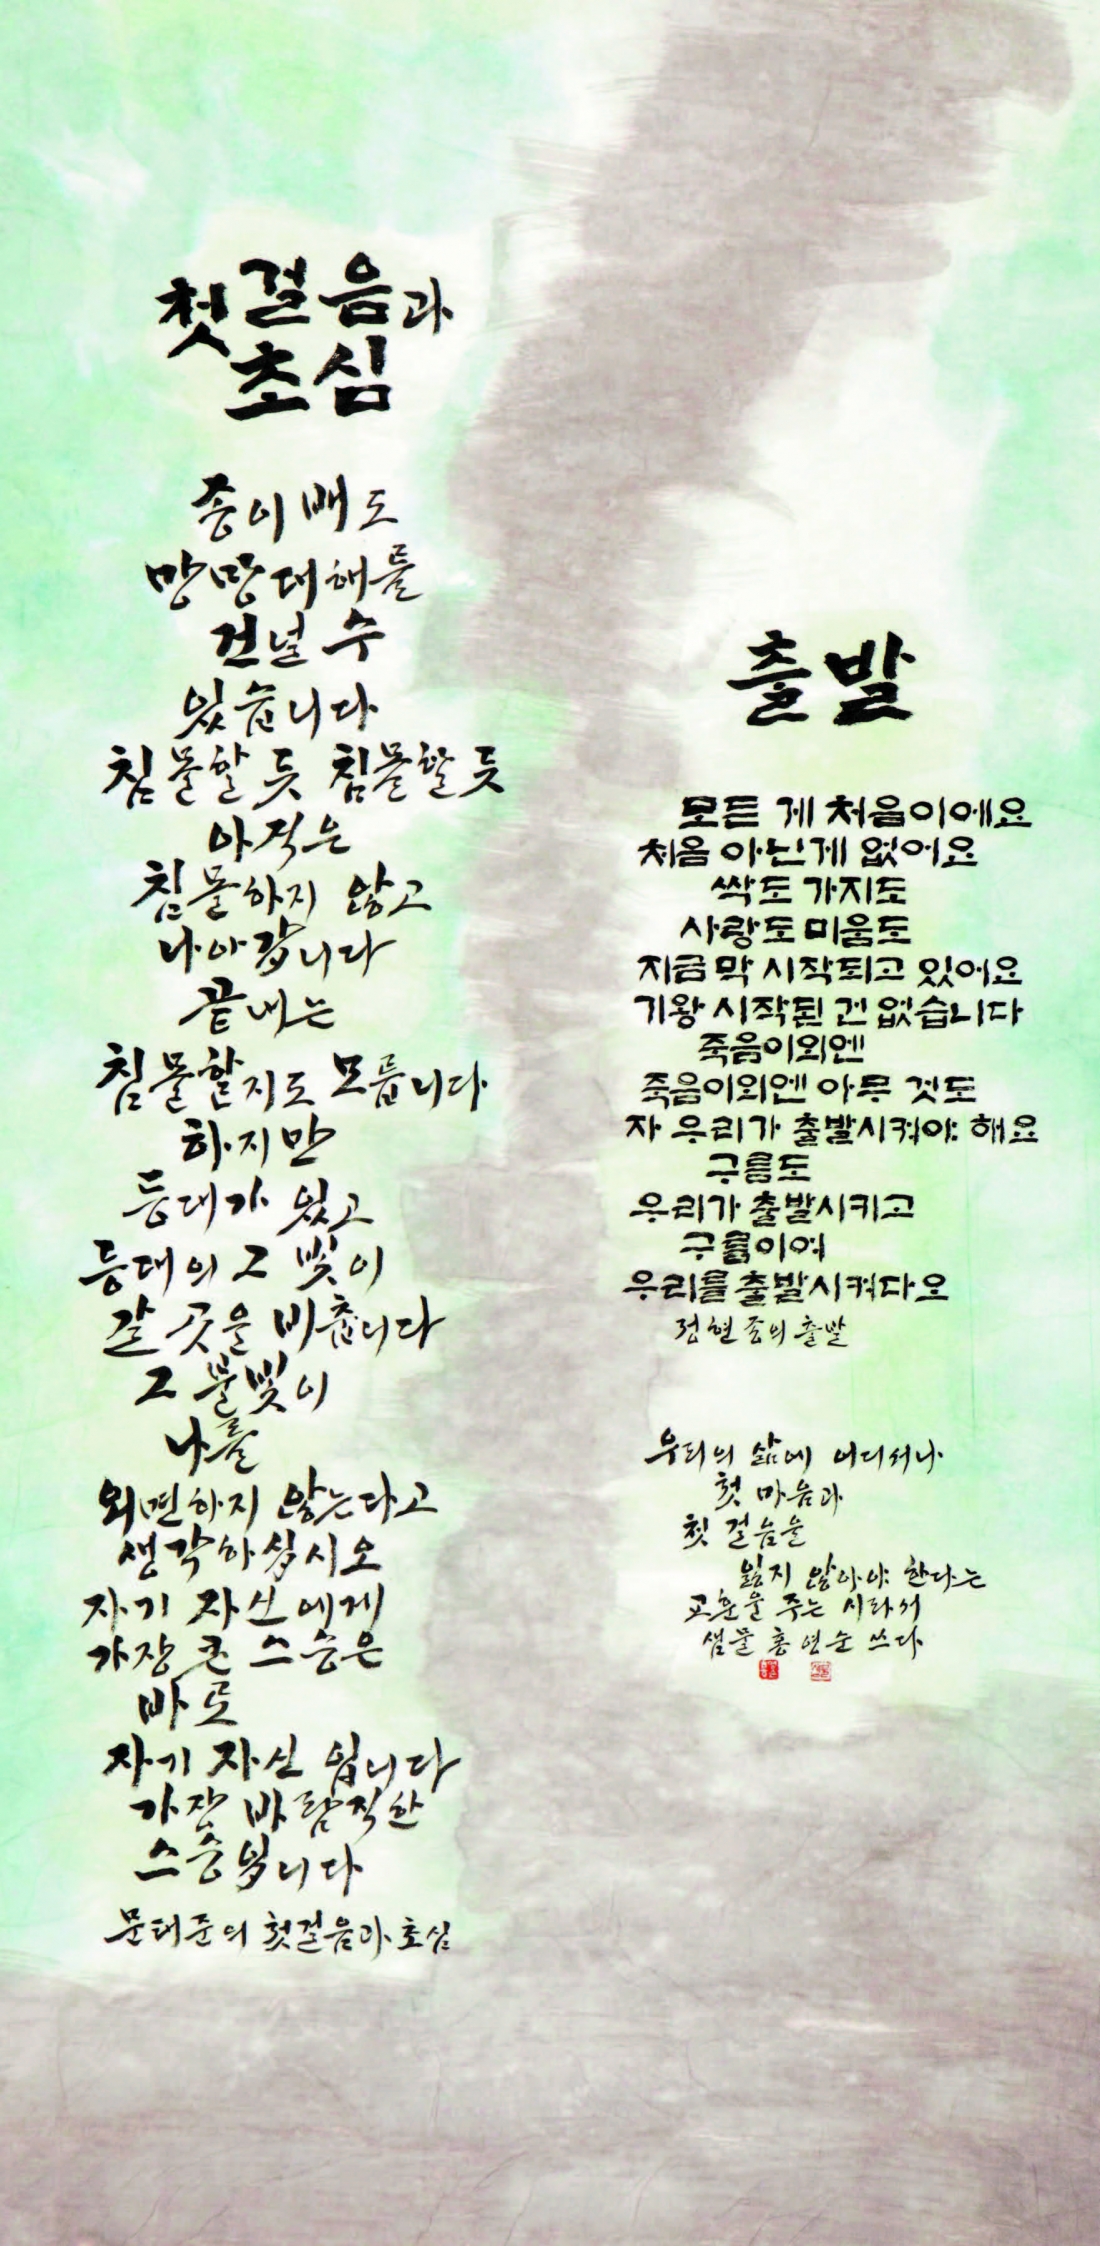 첫걸음과
초심
종이배도
망망대해를
건널 수
있습니다
침몰할 듯 침몰할 듯
아직은
침몰하지 않고
나아갑니다
끝내는
침몰할지도 모릅니다
하지만
등대가 있고
등대의 그 빛이
갈 곳을 비춥니다
그 불빛이
나를
외면하지 않는다고
생각하십시오
자기 자신에게
가장 큰 스승은
바로
자기 자신 입니다
가장 바람직한
스승입니다
문태준의 첫걸음과 초심
출발
모든 게 처음이에요
처음 아닌게 없어요
싹도 가지도
사랑도 미움도
지금 막 시작되고 있어요
기왕 시작된 건 없습니다
죽음이외엔
죽음이외엔 아무 것도
자 우리가 출발시켜야 해요
구름도
우리가 출발시키고
구름이여
우리를 출발시켜다오
정현종의 출발
우리의 삶에 어디서나
첫 마음과
첫 걸음을
잃지 않아야 한다는
교훈을 주는 시라서
샘물 홍연순 쓰다